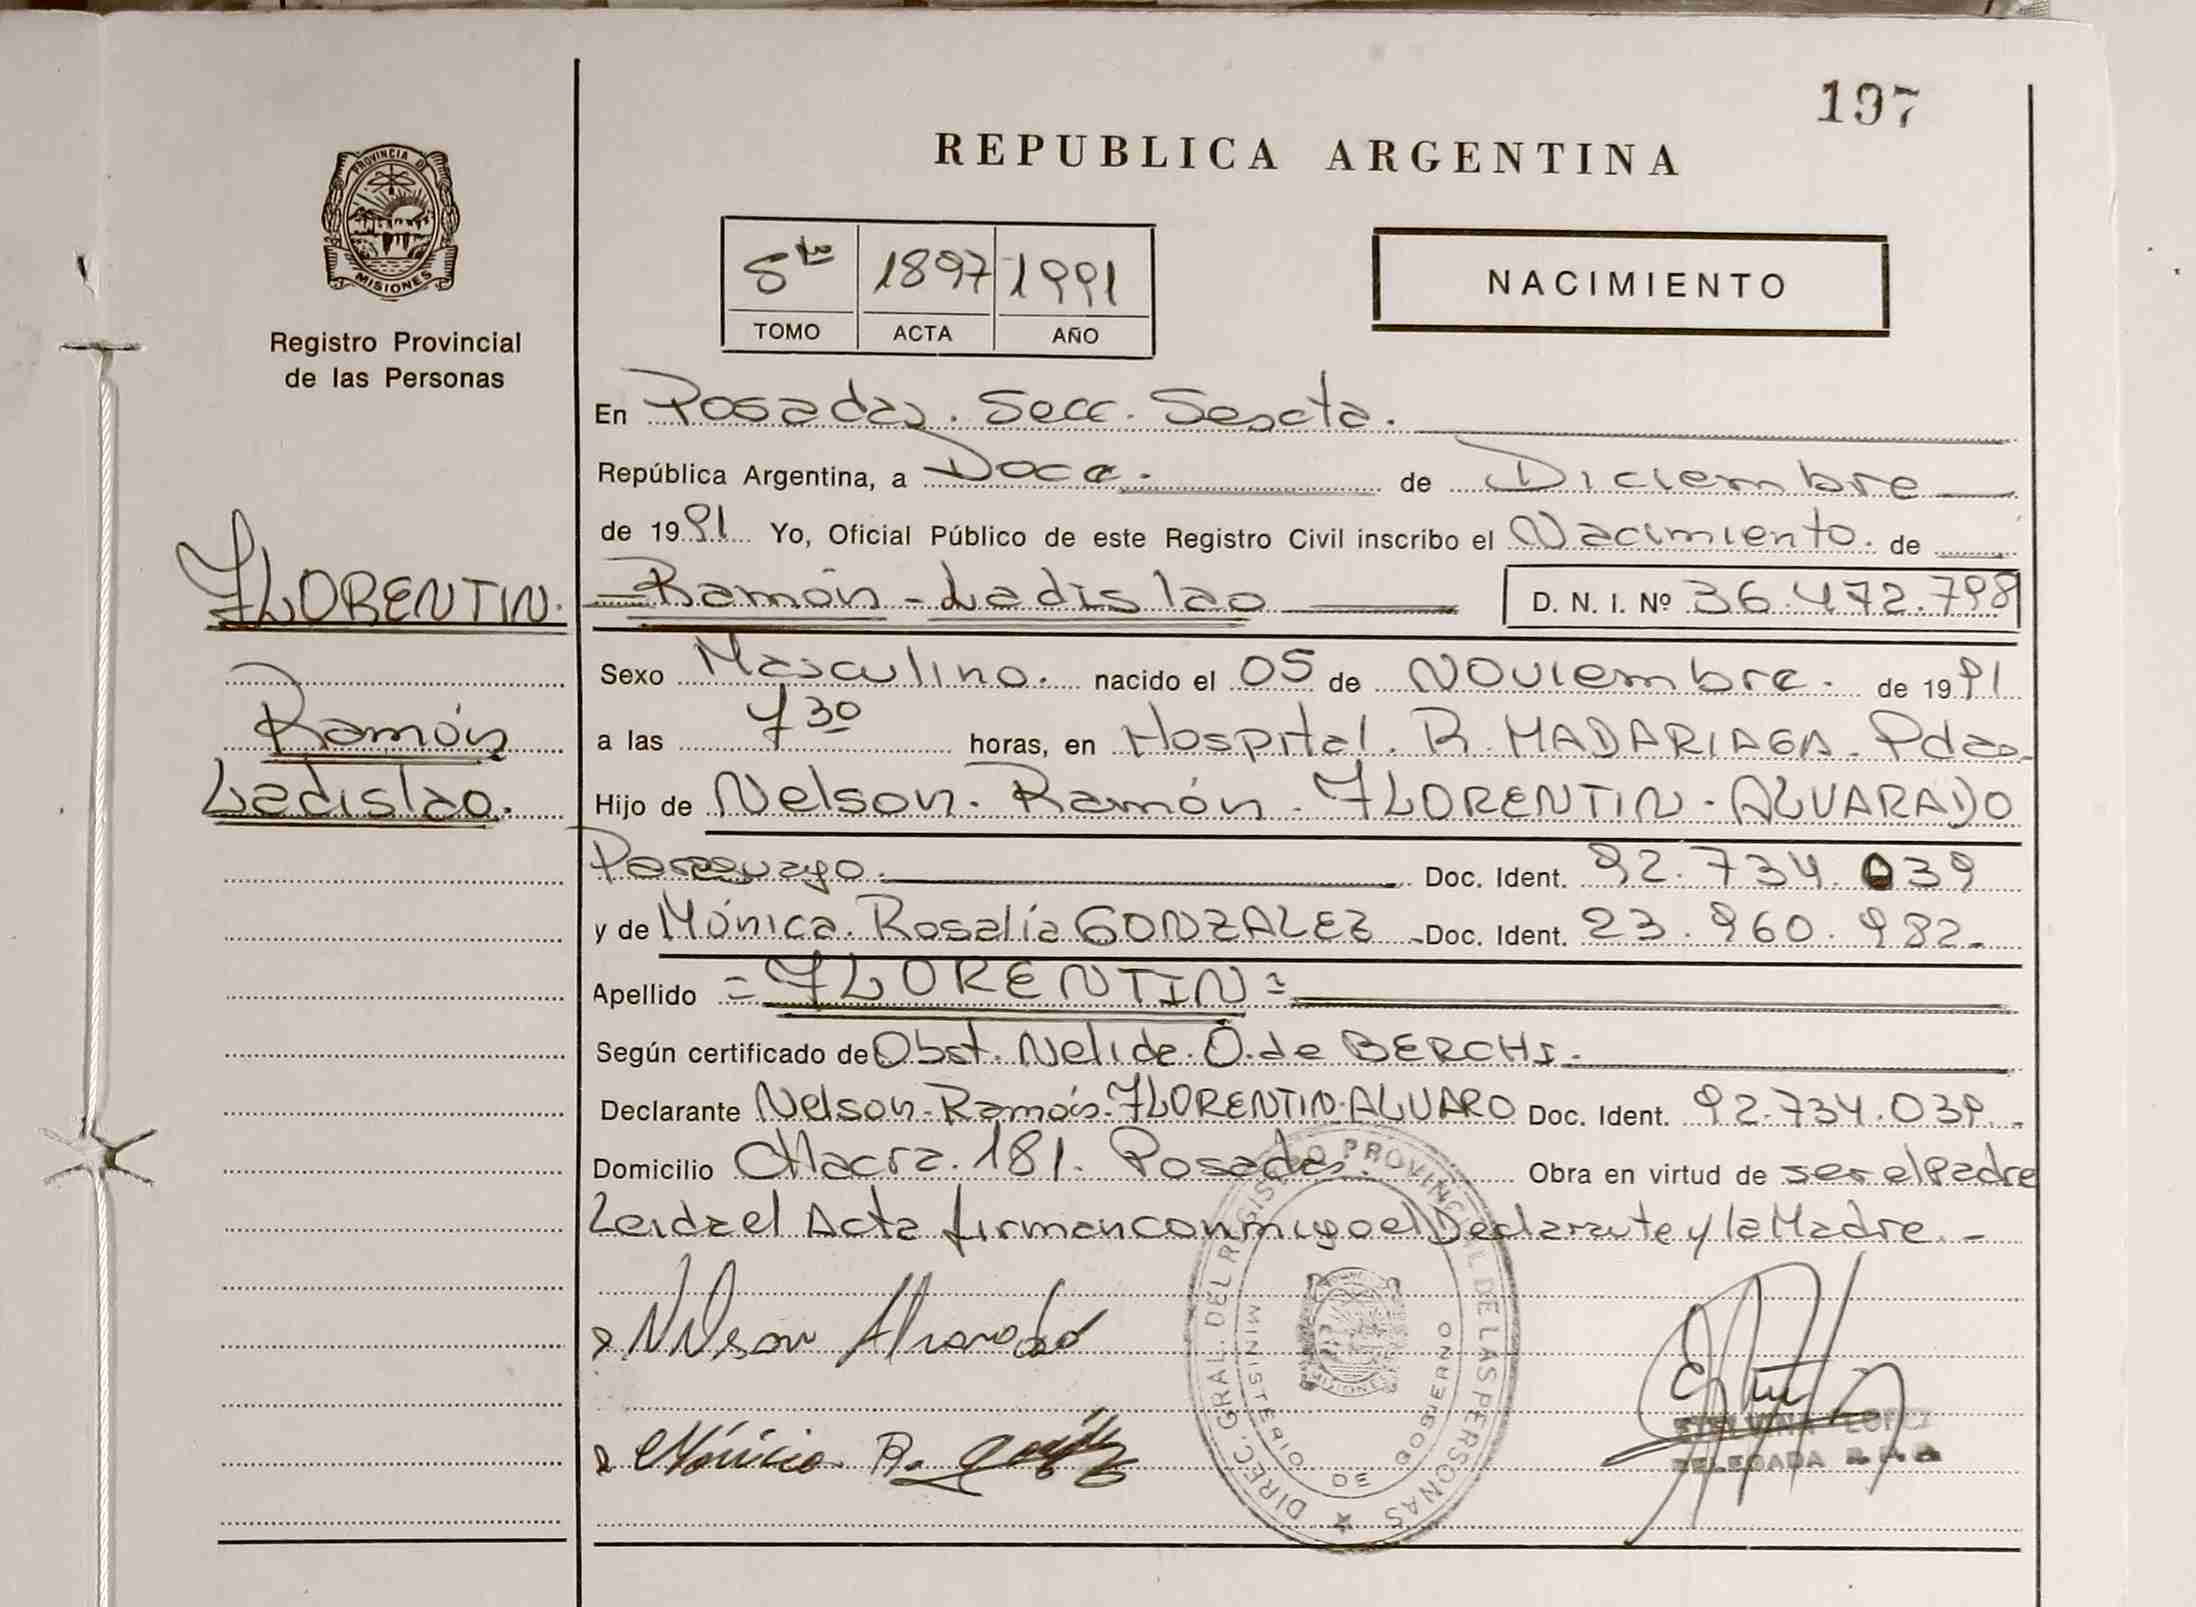 197
REPUBLICA ARGENTINA
PROVINCIA DE MISIONES
Registro Provincial
de las Personas
5to 1897 1991
TOMO ACTA AÑO
NACIMIENTO
En Posadas. Secc. Sescta.
República Argentina, a Doce. de Diciembre
de 1991 Yo, Oficial Público de este Registro Civil inscribo el Nacimiento. de
FLORENTIN.
Ramón
Ladislao.
Ramón - Ladislao D. N. I. Nº 36.472.798
Sexo Masculino. nacido el 05 de Noviembre. de 1991
a las 7 30 horas, en Hospital. R. MADARIAGA. Pdas
Hijo de Nelson. Ramón. FLORENTIN. ALVARADO
Paraguayo. Doc. Ident. 92.734.039
y de Mónica. Rosalía GONZALEZ Doc. Ident. 23.960.982
Apellido = FLORENTIN =
Según certificado de Obst. Nelida. O. de BERCHI.
Declarante Nelson. Ramón. FLORENTIN. ALVARO Doc. Ident. 92.734.039
Domicilio Chacra. 181. Posadas. Obra en virtud de ser el Padre
Leida el Acta firman conmigo el Declarante y la Madre. -
Nelson Alvarado
Mónica R.
DIREC. GRAL. DEL REGISTRO PROVINCIAL DE LAS PERSONAS
MINISTERIO DE GOBIERNO
MISIONES
LOPEZ
DELEGADA